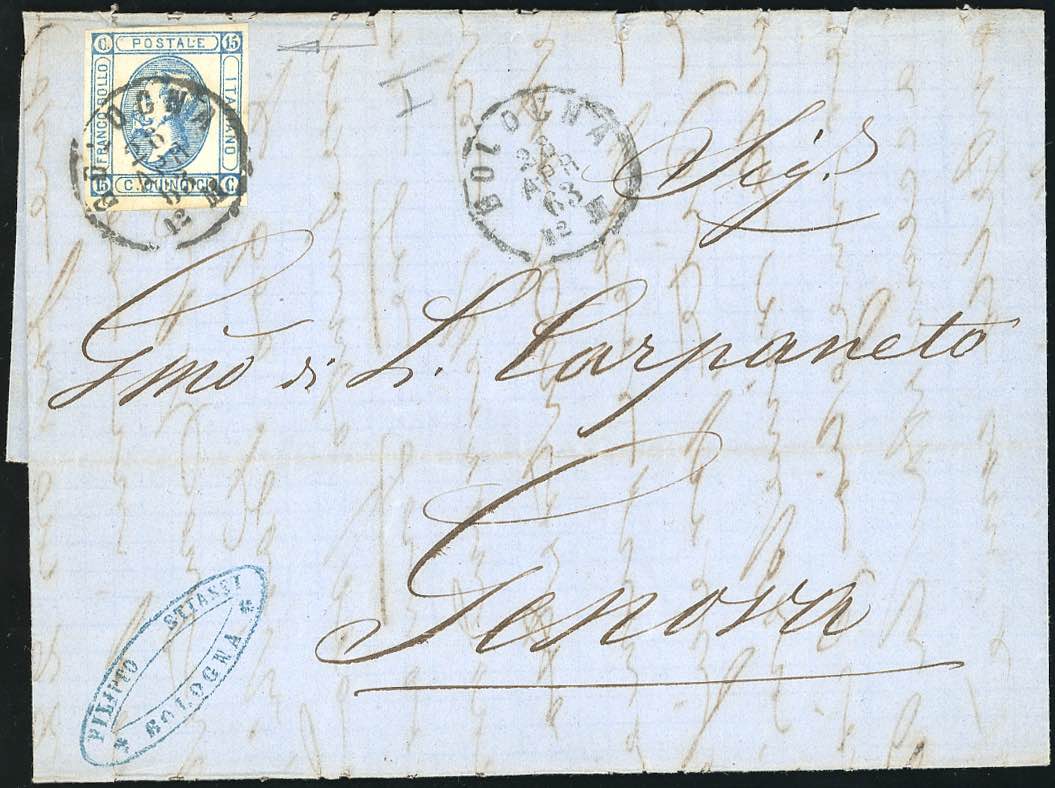 C. POSTALE 15
FRANCO BOLLO
ITALIANO
15 C. QUINDICI C.
BOLOGNA
28
APR
63
12 M
BOLOGNA
28
APR
63
12 M
I
Sig.r
Gmo di L. Carpaneto
Genova
FILIPPO
BOLOGNA